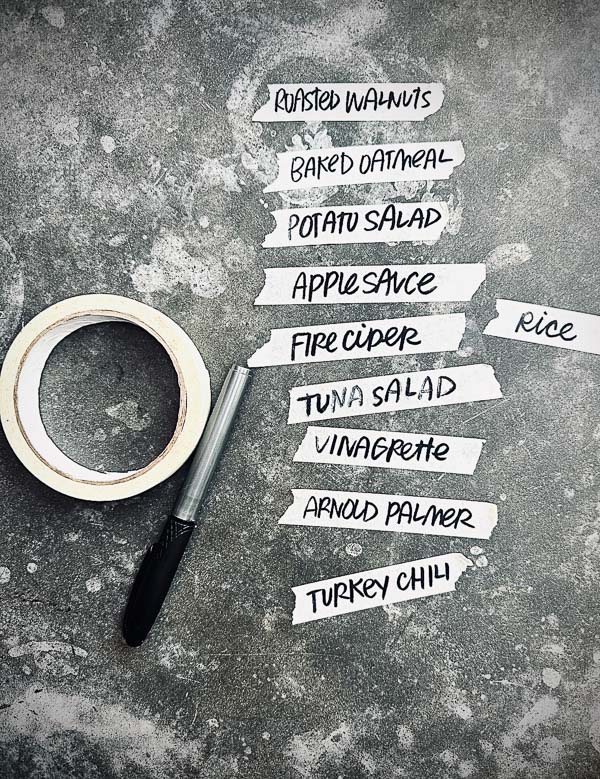 ROASTED WALNUTS
BAKED OATMEAL
POTATO SALAD
APPLE SAUCE
FIRE CIDER
RICE
TUNA SALAD
VINAGRETTE
ARNOLD PALMER
TURKEY CHILI